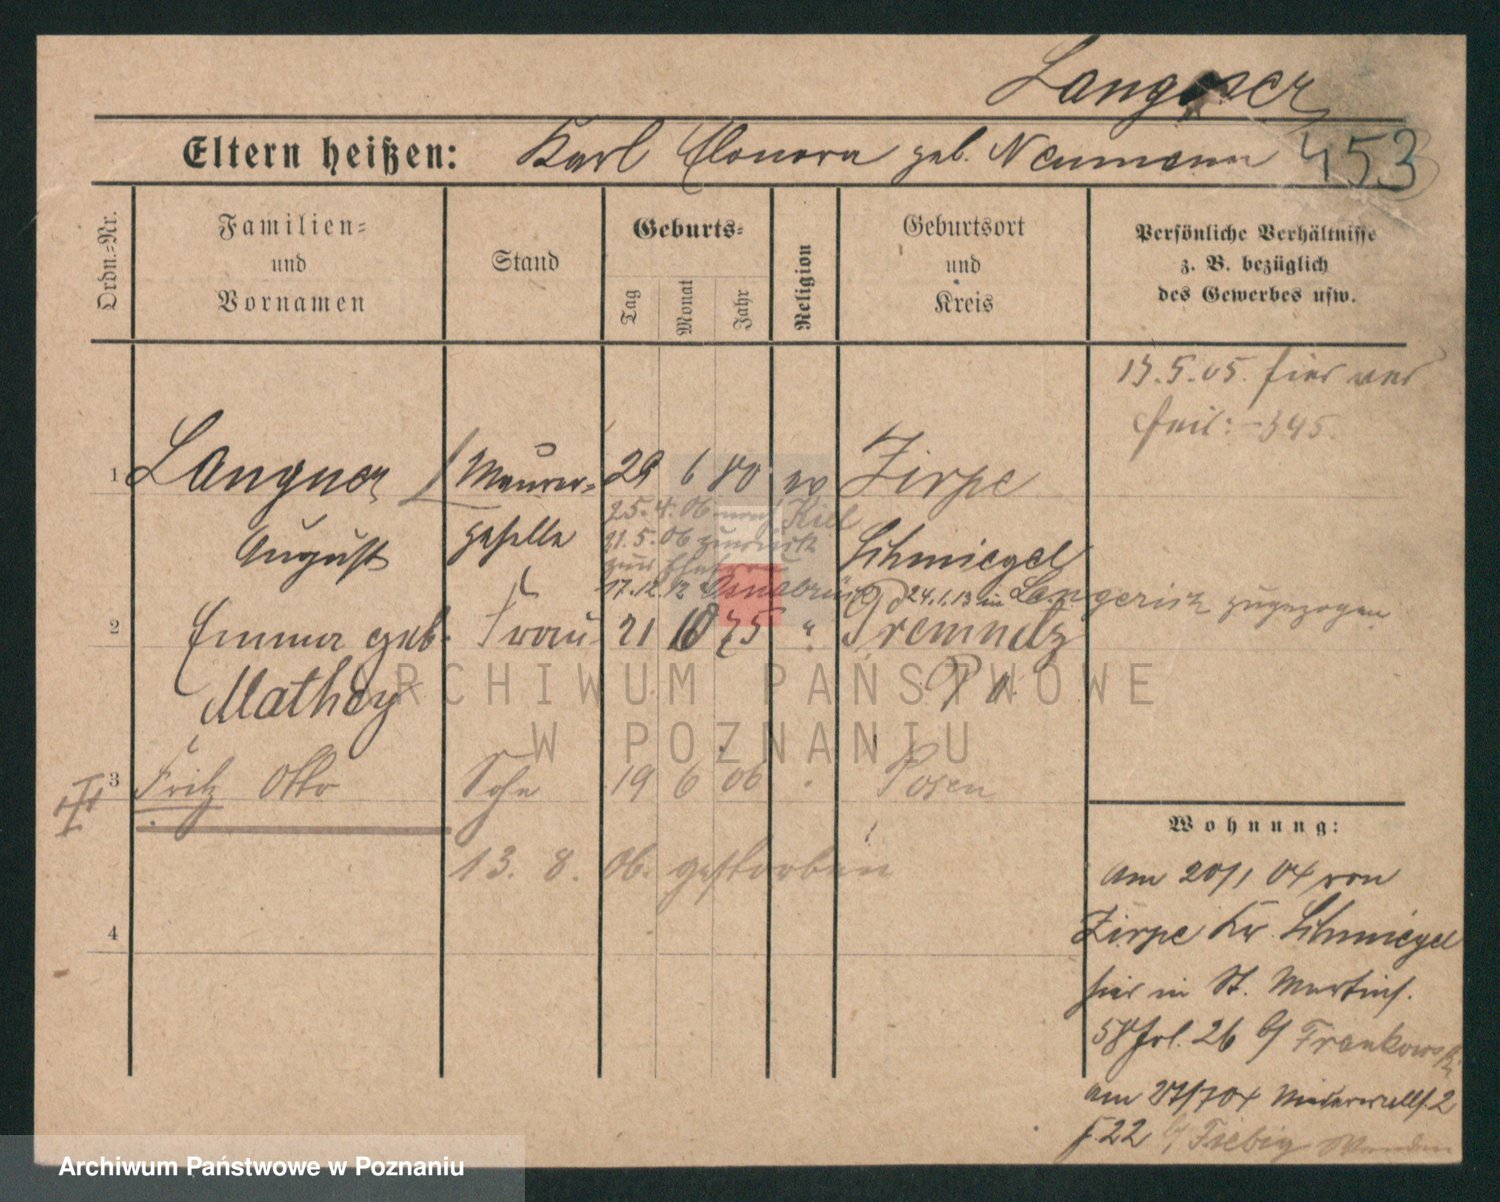 Langner
Eltern heißen: Karl Elonora geb. Neumann 453
Ordn.-Nr.
Familien- und Vornamen
Stand
Geburts-
Tag Monat Jahr
Religion
Geburtsort und Kreis
Persönliche Verhältnisse
z. B. bezüglich
des Gewerbes usw.
13.5.05. hier ver
heil: 345.
1 Langner Maurer- 29 6 80 ev Zirpe
25.4.06 nach Kiel
August geselle 21.5.06 zurück Schmiegel
zur Ehefrau
17.12.12 Osnabrück 24.1.13 in Langerich zugezogen
2 Emma geb. Frau 21 10 75 " Premnitz
Mathey
3 Fritz Otto Sohn 19 6 06 Posen
13. 8. 06. gestorben
4
Wohnung:
am 20/1 04 von
Zirpe Kr. Schmiegel
hier in St. Martinst.
58 Frl. 26 b/ Frankowski
am 27/7 04 Niederwallst. 2
f. 22 b/ Fiebig
ARCHIWUM PAŃSTWOWE
W POZNANIU
Archiwum Państwowe w Poznaniu